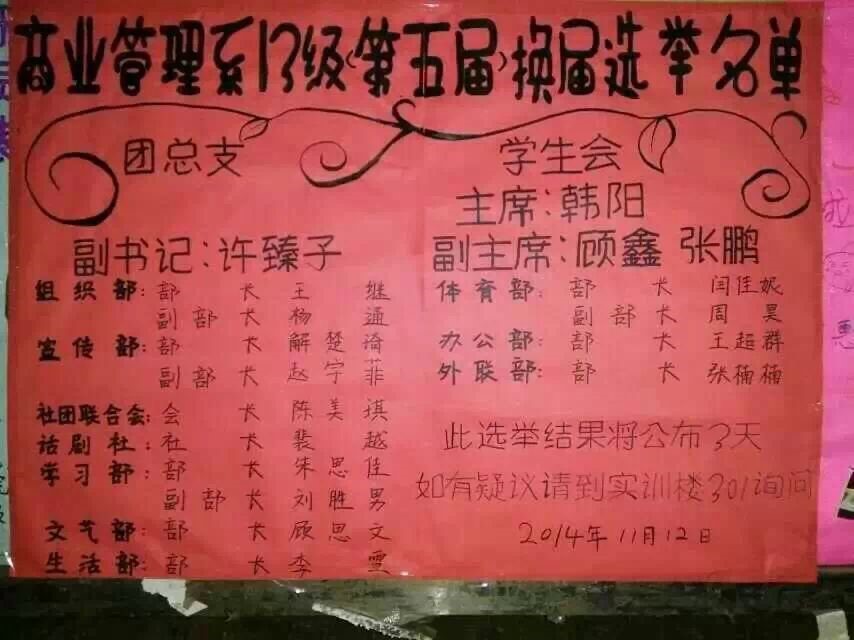 商业管理系13级(第五届)换届选举名单
团总支
副书记:许臻子
组织部:部长 王继
副部长 杨通
宣传部:部长 解楚琦
副部长 赵宇菲
社团联合会:会长 陈美琪
话剧社:社长 裴越
学习部:部长 朱思佳
副部长 刘胜男
文艺部:部长 顾思文
生活部:部长 李雯
学生会
主席:韩阳
副主席:顾鑫 张鹏
体育部:部长 闫佳妮
副部长 周昊
办公部:部长 王超群
外联部:部长 张楠楠
此选举结果将公布3天
如有疑议请到实训楼301询问
2014年11月12日